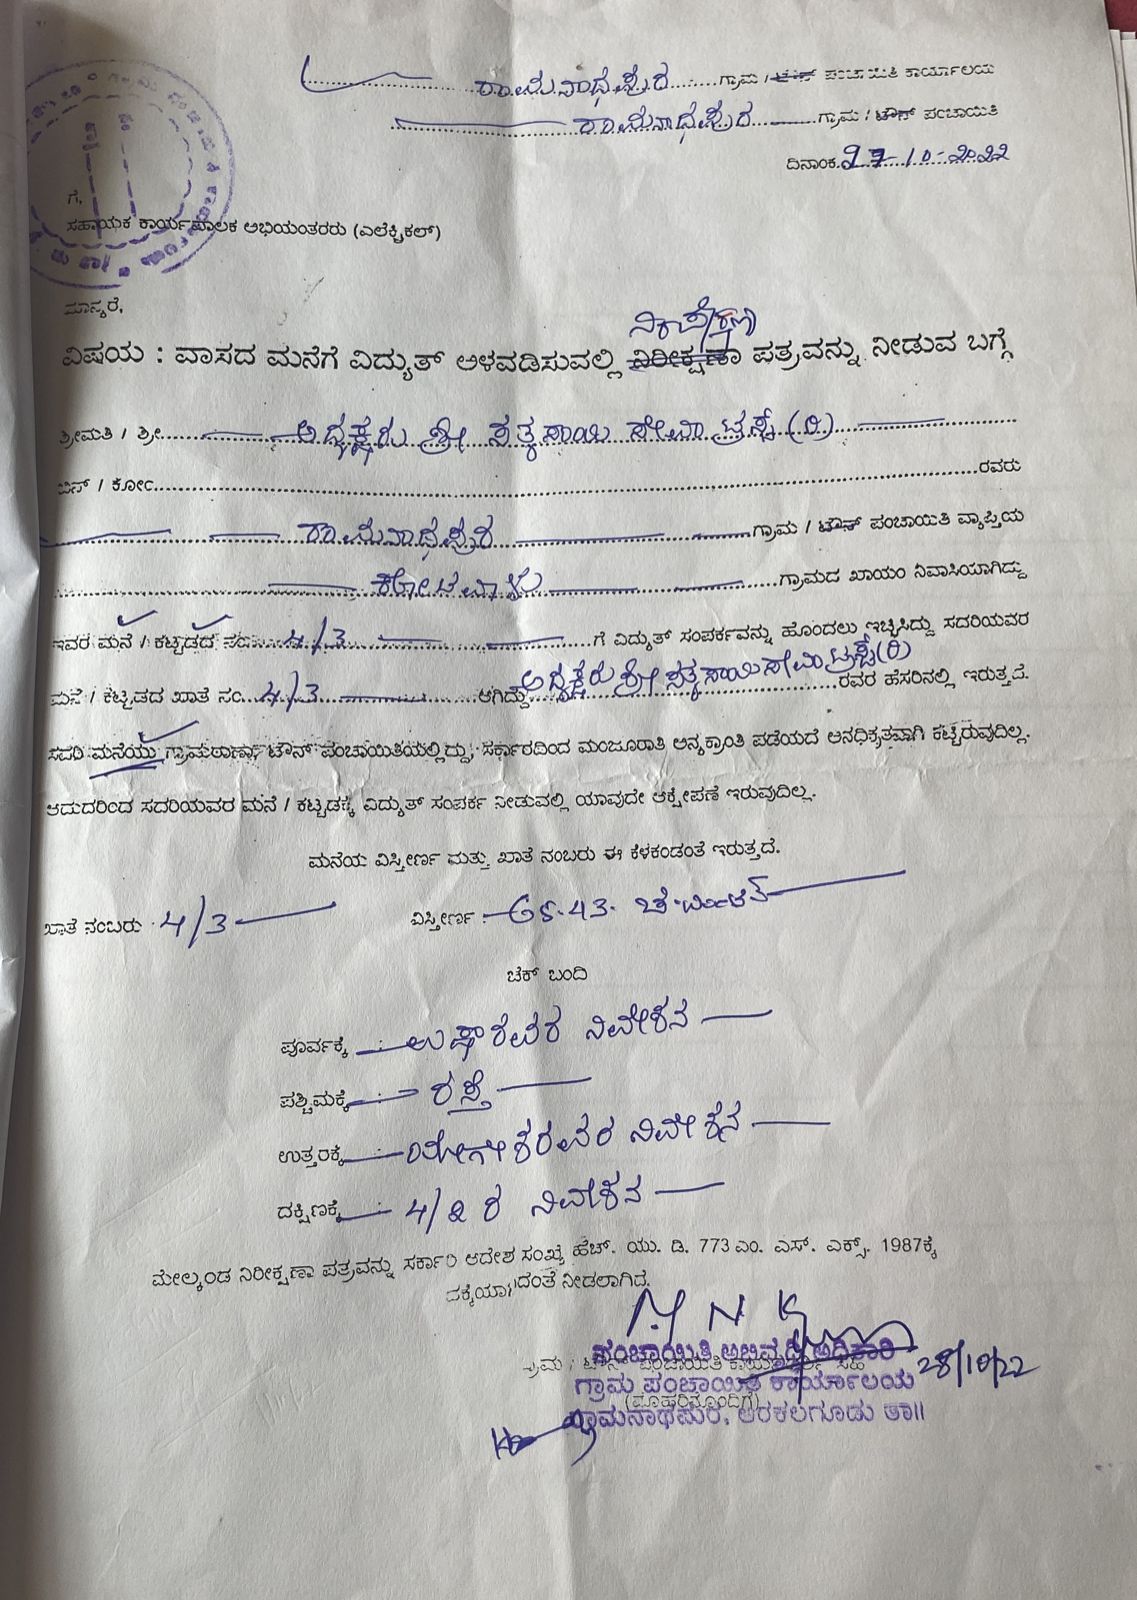 ರಾಮನಾಥಪುರ ಗ್ರಾಮ / ಟೌನ್ ಪಂಚಾಯಿತಿ ಕಾರ್ಯಾಲಯ
ರಾಮನಾಥಪುರ ಗ್ರಾಮ / ಟೌನ್ ಪಂಚಾಯಿತಿ
ದಿನಾಂಕ 27-10-2022
ಗೆ,
ಸಹಾಯಕ ಕಾರ್ಯಪಾಲಕ ಅಭಿಯಂತರರು (ಎಲೆಕ್ಟ್ರಿಕಲ್)
ಮಾನ್ಯರೆ,
ವಿಷಯ : ವಾಸದ ಮನೆಗೆ ವಿದ್ಯುತ್ ಅಳವಡಿಸುವಲ್ಲಿ ನಿರೀಕ್ಷಣಾ ಪತ್ರವನ್ನು ನೀಡುವ ಬಗ್ಗೆ
ಶ್ರೀಮತಿ / ಶ್ರೀ ಅಧ್ಯಕ್ಷರು ಶ್ರೀ ಸತ್ಯಸಾಯಿ ಸೇವಾ ಟ್ರಸ್ಟ್ (ರಿ)
ಬಿನ್ / ಕೋಂ ರವರು
ರಾಮನಾಥಪುರ ಗ್ರಾಮ / ಟೌನ್ ಪಂಚಾಯಿತಿ ವ್ಯಾಪ್ತಿಯ
ಗ್ರಾಮದ ಖಾಯಂ ನಿವಾಸಿಯಾಗಿದ್ದು
ಇವರ ಮನೆ / ಕಟ್ಟಡದ ನಂ 4/3 ಗೆ ವಿದ್ಯುತ್ ಸಂಪರ್ಕವನ್ನು ಹೊಂದಲು ಇಚ್ಛಿಸಿದ್ದು ಸದರಿಯವರ
ಮನೆ / ಕಟ್ಟಡದ ಖಾತೆ ನಂ 4/3 ಆಗಿದ್ದು ಅಧ್ಯಕ್ಷರು ಶ್ರೀ ಸತ್ಯಸಾಯಿ ಸೇವಾ ಟ್ರಸ್ಟ್ (ರಿ) ರವರ ಹೆಸರಿನಲ್ಲಿ ಇರುತ್ತದೆ.
ಸದರಿ ಮನೆಯು ಗ್ರಾಮಠಾಣಾ, ಟೌನ್ ಪಂಚಾಯಿತಿಯಲ್ಲಿದ್ದು, ಸರ್ಕಾರದಿಂದ ಮಂಜೂರಾತಿ ಅನ್ಯಕ್ರಾಂತಿ ಪಡೆಯದೆ ಅನಧಿಕೃತವಾಗಿ ಕಟ್ಟಿರುವುದಿಲ್ಲ.
ಆದುದರಿಂದ ಸದರಿಯವರ ಮನೆ / ಕಟ್ಟಡಕ್ಕೆ ವಿದ್ಯುತ್ ಸಂಪರ್ಕ ನೀಡುವಲ್ಲಿ ಯಾವುದೇ ಆಕ್ಷೇಪಣೆ ಇರುವುದಿಲ್ಲ.
ಮನೆಯ ವಿಸ್ತೀರ್ಣ ಮತ್ತು ಖಾತೆ ನಂಬರು ಈ ಕೆಳಕಂಡಂತೆ ಇರುತ್ತದೆ.
ಖಾತೆ ನಂಬರು : 4/3 ವಿಸ್ತೀರ್ಣ : 65.43 ಚ.ಮೀಟರ್
ಚೆಕ್ ಬಂದಿ
ಪೂರ್ವಕ್ಕೆ : ಉಷಾರವರ ನಿವೇಶನ
ಪಶ್ಚಿಮಕ್ಕೆ : ರಸ್ತೆ
ಉತ್ತರಕ್ಕೆ : ಯೋಗೀಶರವರ ನಿವೇಶನ
ದಕ್ಷಿಣಕ್ಕೆ : 4/2 ರ ನಿವೇಶನ
ಮೇಲ್ಕಂಡ ನಿರೀಕ್ಷಣಾ ಪತ್ರವನ್ನು ಸರ್ಕಾರಿ ಆದೇಶ ಸಂಖ್ಯೆ ಹೆಚ್. ಯು. ಡಿ. 773 ಎಂ. ಎಸ್. ಎಕ್ಸ್. 1987ಕ್ಕೆ
ನೀಡಲಾಗಿದೆ.
ಪಂಚಾಯಿತಿ ಅಭಿವೃದ್ಧಿ ಅಧಿಕಾರಿ
28/10/22
ಗ್ರಾಮ ಪಂಚಾಯಿತಿ ಕಾರ್ಯಾಲಯ
ರಾಮನಾಥಪುರ, ಅರಕಲಗೂಡು ತಾ||